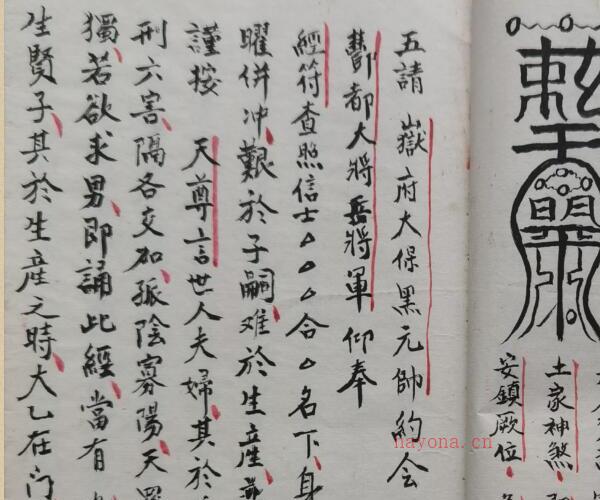 土家神煞
安鎮厥位
五請 嶽府大保黑元帥約会
酆都大將岳將軍仰奉
經符查照信士△△△合△名下身
曜併冲艱於子嗣难於生產
謹按 天尊言世人夫婦其於
刑六害隔各交加孤陰寡陽天
獨若欲求男即誦此經當有
生賢子其於生產之時大乙在门
nayona.cn